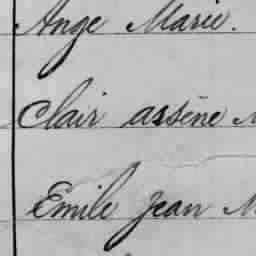 Ange Marie.
Clair arsène M
Emile Jean M